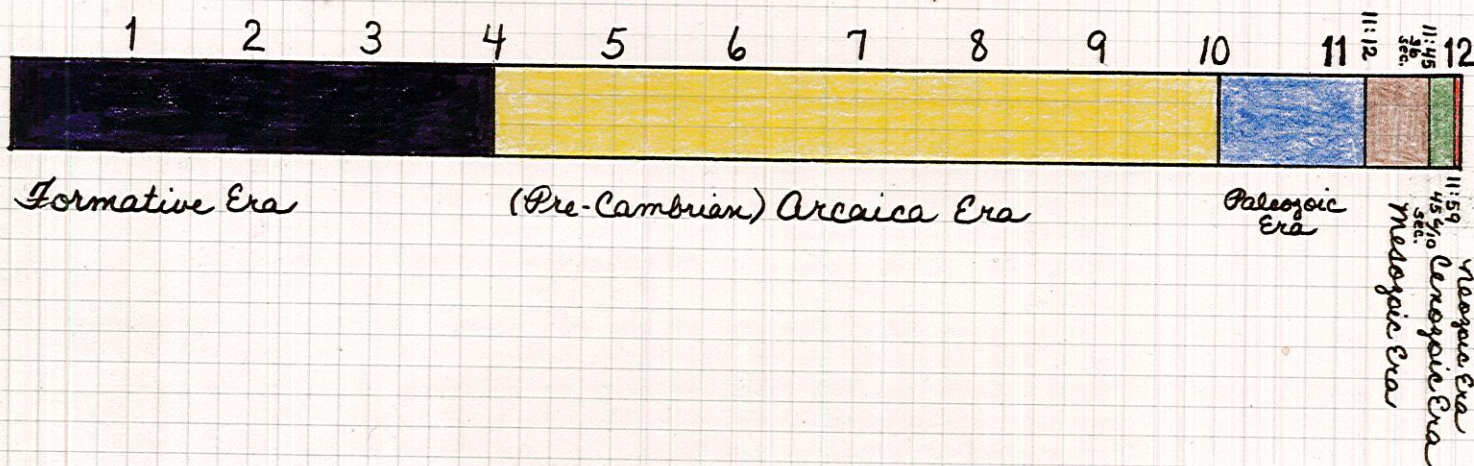 1 2 3 4 5 6 7 8 9 10 11 11:12 11:45 36 sec. 12
Formative Era
(Pre-Cambrian) Arcaica Era
Paleozoic
Era
Mesozoic Era
11:59
45 6/10
sec.
Cenozoic Era
Neozoic Era